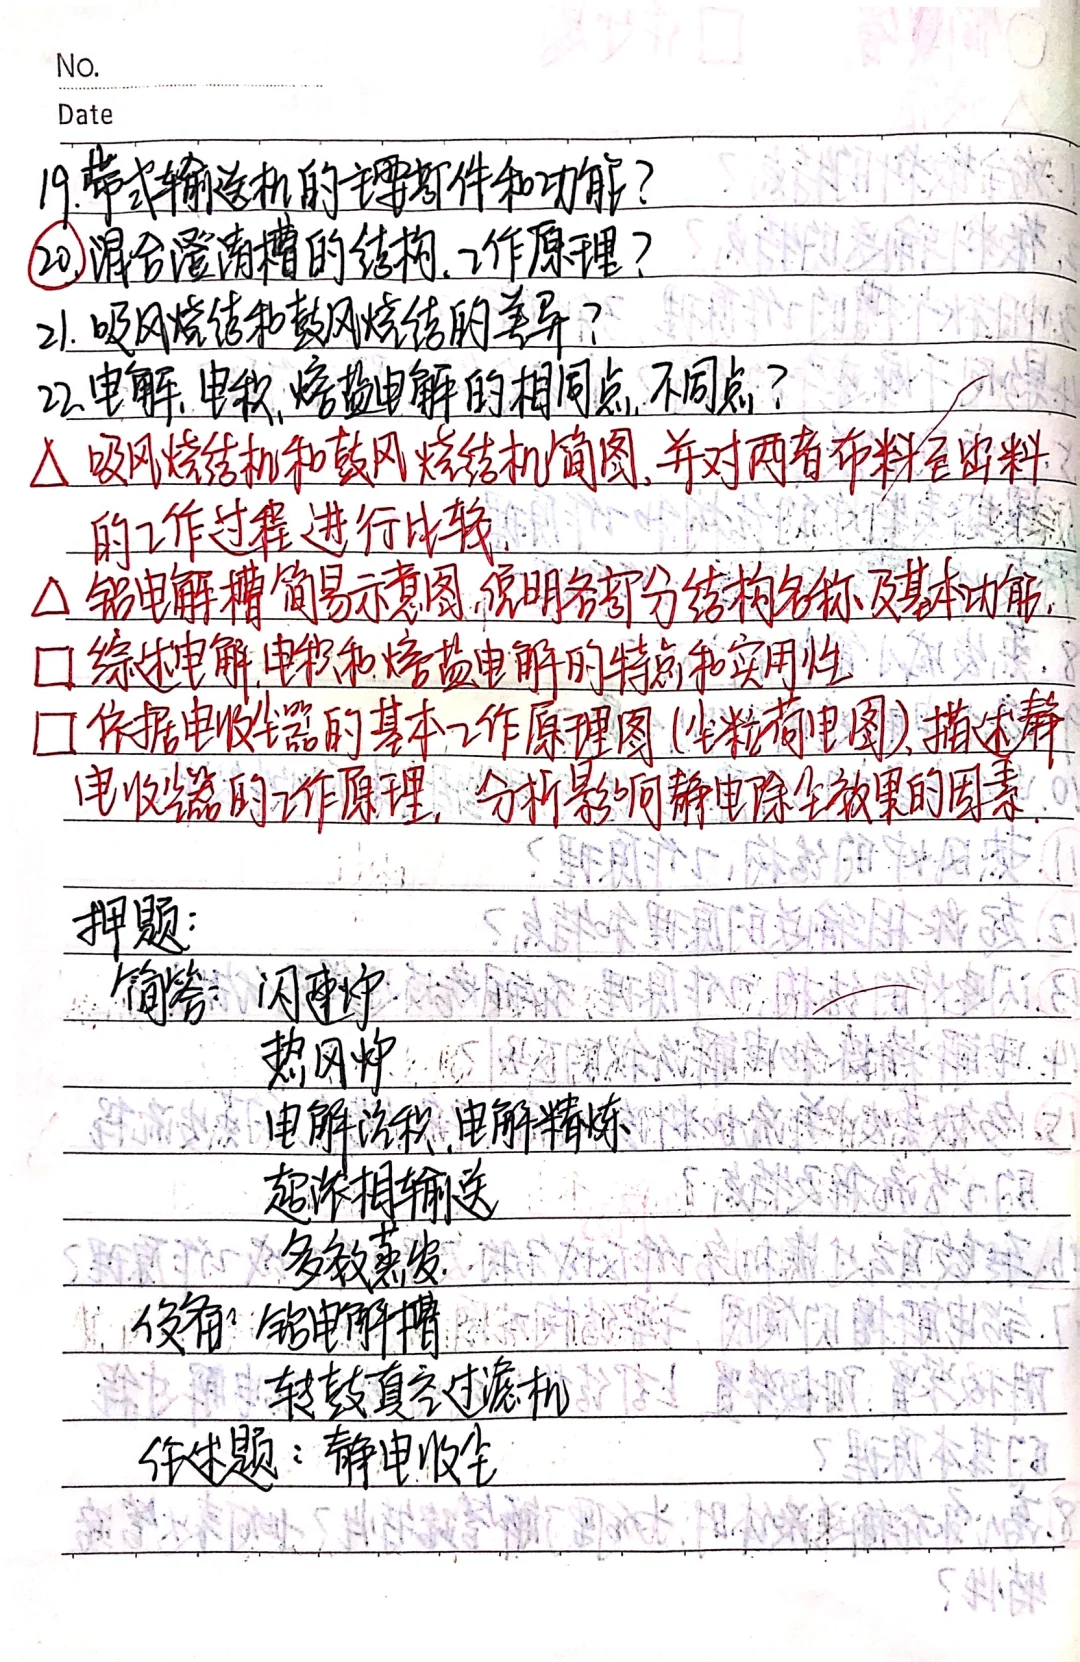 No.
Date
19.带式输送机的主要部件和功能?
20.混合澄清槽的结构、工作原理?
21.吸风烧结和鼓风烧结的差异?
22.电解、电积、熔盐电解的相同点、不同点?
△ 吸风烧结机和鼓风烧结机简图,并对两者布料至出料
的工作过程进行比较.
△ 铝电解槽简易示意图,说明各部分结构名称及基本功能.
□ 综述电解、电积和熔盐电解的特点和实用性
□ 依据电收尘器的基本工作原理图(尘粒荷电图),描述静
电收尘器的工作原理,分析影响静电除尘效果的因素.
押题:
简答: 闪速炉
热风炉
电解沉积、电解精炼
超浓相输送
多效蒸发
设备: 铝电解槽
转鼓真空过滤机
作述题: 静电收尘